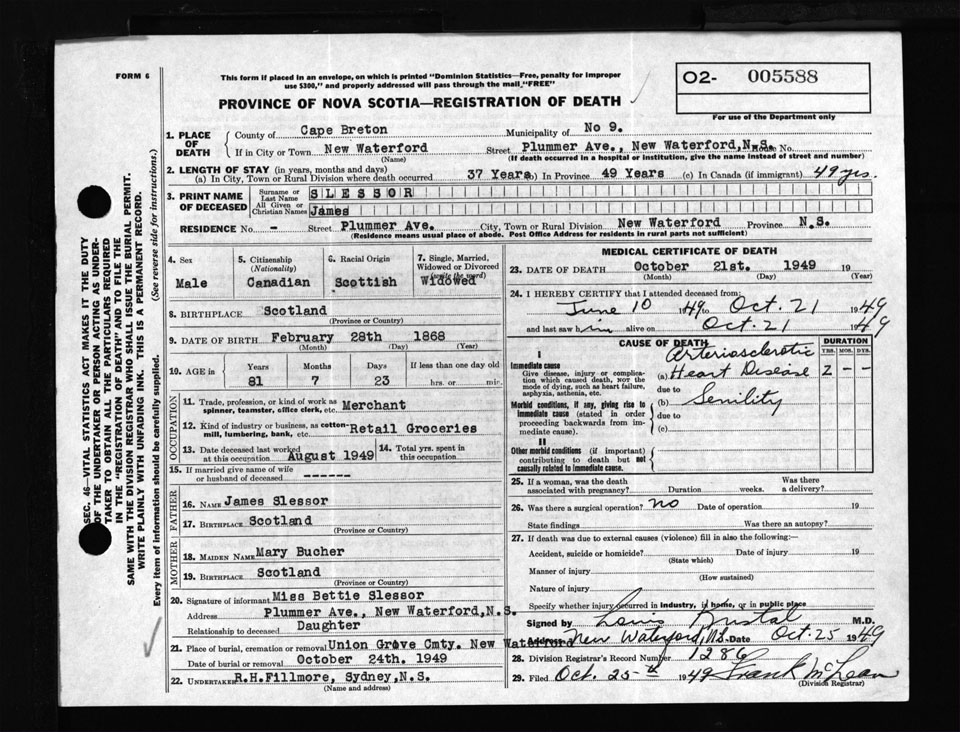 FORM 6
This form if placed in an envelope, on which is printed "Dominion Statistics—Free, penalty for improper
use $300," and properly addressed will pass through the mail "FREE"
O2- 005588
For use of the Department only
PROVINCE OF NOVA SCOTIA—REGISTRATION OF DEATH
1. PLACE OF DEATH
County of Cape Breton Municipality of No 9.
If in City or Town New Waterford Street Plummer Ave., New Waterford,N.S. House No.
(Name) (If death occurred in a hospital or institution, give the name instead of street and number)
2. LENGTH OF STAY (in years, months and days)
(a) In City, Town or Rural Division where death occurred 37 Years (b) In Province 49 Years (c) In Canada (if immigrant) 49 yrs.
3. PRINT NAME OF DECEASED
Surname or Last Name SLESSOR
All Given or Christian Names James
RESIDENCE No. - Street Plummer Ave. City, Town or Rural Division New Waterford Province N.S.
(Residence means usual place of abode. Post Office Address for residents in rural parts not sufficient)
4. Sex
Male
5. Citizenship
(Nationality)
Canadian
6. Racial Origin
Scottish
7. Single, Married,
Widowed or Divorced
(write the word)
Widowed
8. BIRTHPLACE Scotland
(Province or Country)
9. DATE OF BIRTH February 28th 1868
(Month) (Day) (Year)
10. AGE in
Years Months Days If less than one day old
81 7 23 hrs. or min.
OCCUPATION
11. Trade, profession, or kind of work as
spinner, teamster, office clerk, etc. Merchant
12. Kind of industry or business, as cotton-
mill, lumbering, bank, etc. Retail Groceries
13. Date deceased last worked
at this occupation August 1949
14. Total yrs. spent in
this occupation
15. If married give name of wife
or husband of deceased -------
FATHER
16. NAME James Slessor
17. BIRTHPLACE Scotland
(Province or Country)
MOTHER
18. MAIDEN NAME Mary Bucher
19. BIRTHPLACE Scotland
(Province or Country)
20. Signature of informant Miss Bettie Slessor
Address Plummer Ave., New Waterford,N.S.
Relationship to deceased Daughter
21. Place of burial, cremation or removal Union Grove Cmty. New Waterford
Date of burial or removal October 24th. 1949
22. UNDERTAKER R.H.Fillmore, Sydney,N.S.
(Name and address)
MEDICAL CERTIFICATE OF DEATH
23. DATE OF DEATH October 21st. 1949 19
(Month) (Day) (Year)
24. I HEREBY CERTIFY that I attended deceased from:
June 10 1949 to Oct. 21 1949
and last saw him alive on Oct. 21 1949
CAUSE OF DEATH
DURATION
YRS. MOS. DYS.
I
Immediate cause
Give disease, injury or complica-
tion which caused death, not the
mode of dying, such as heart failure,
asphyxia, asthenia, etc.
Arteriosclerotic
(a) Heart Disease 2 - -
due to
Morbid conditions, if any, giving rise to
immediate cause (stated in order
proceeding backwards from im-
mediate cause).
(b) Senility
due to
(c)
II
Other morbid conditions (if important)
contributing to death but not
causally related to immediate cause.
25. If a woman, was the death
associated with pregnancy? Duration weeks. Was there
a delivery?
26. Was there a surgical operation? no Date of operation 19
State findings Was there an autopsy?
27. If death was due to external causes (violence) fill in also the following:—
Accident, suicide or homicide? Date of injury 19
(State which)
Manner of injury
(How sustained)
Nature of injury
Specify whether injury occurred in industry, in home, or in public place
Signed by Louis M.D.
Address New Waterford, N.S. Date Oct. 25 1949
28. Division Registrar's Record Number 1286
29. Filed Oct. 25th 1949 Frank McLean
(Division Registrar)
SEC. 46—VITAL STATISTICS ACT MAKES IT THE DUTY
OF THE UNDERTAKER OR PERSON ACTING AS UNDER-
TAKER TO OBTAIN ALL THE PARTICULARS REQUIRED
IN THE "REGISTRATION OF DEATH" AND TO FILE THE
SAME WITH THE DIVISION REGISTRAR WHO SHALL ISSUE THE BURIAL PERMIT.
WRITE PLAINLY WITH UNFADING INK. THIS IS A PERMANENT RECORD.
Every item of information should be carefully supplied. (See reverse side for instructions.)